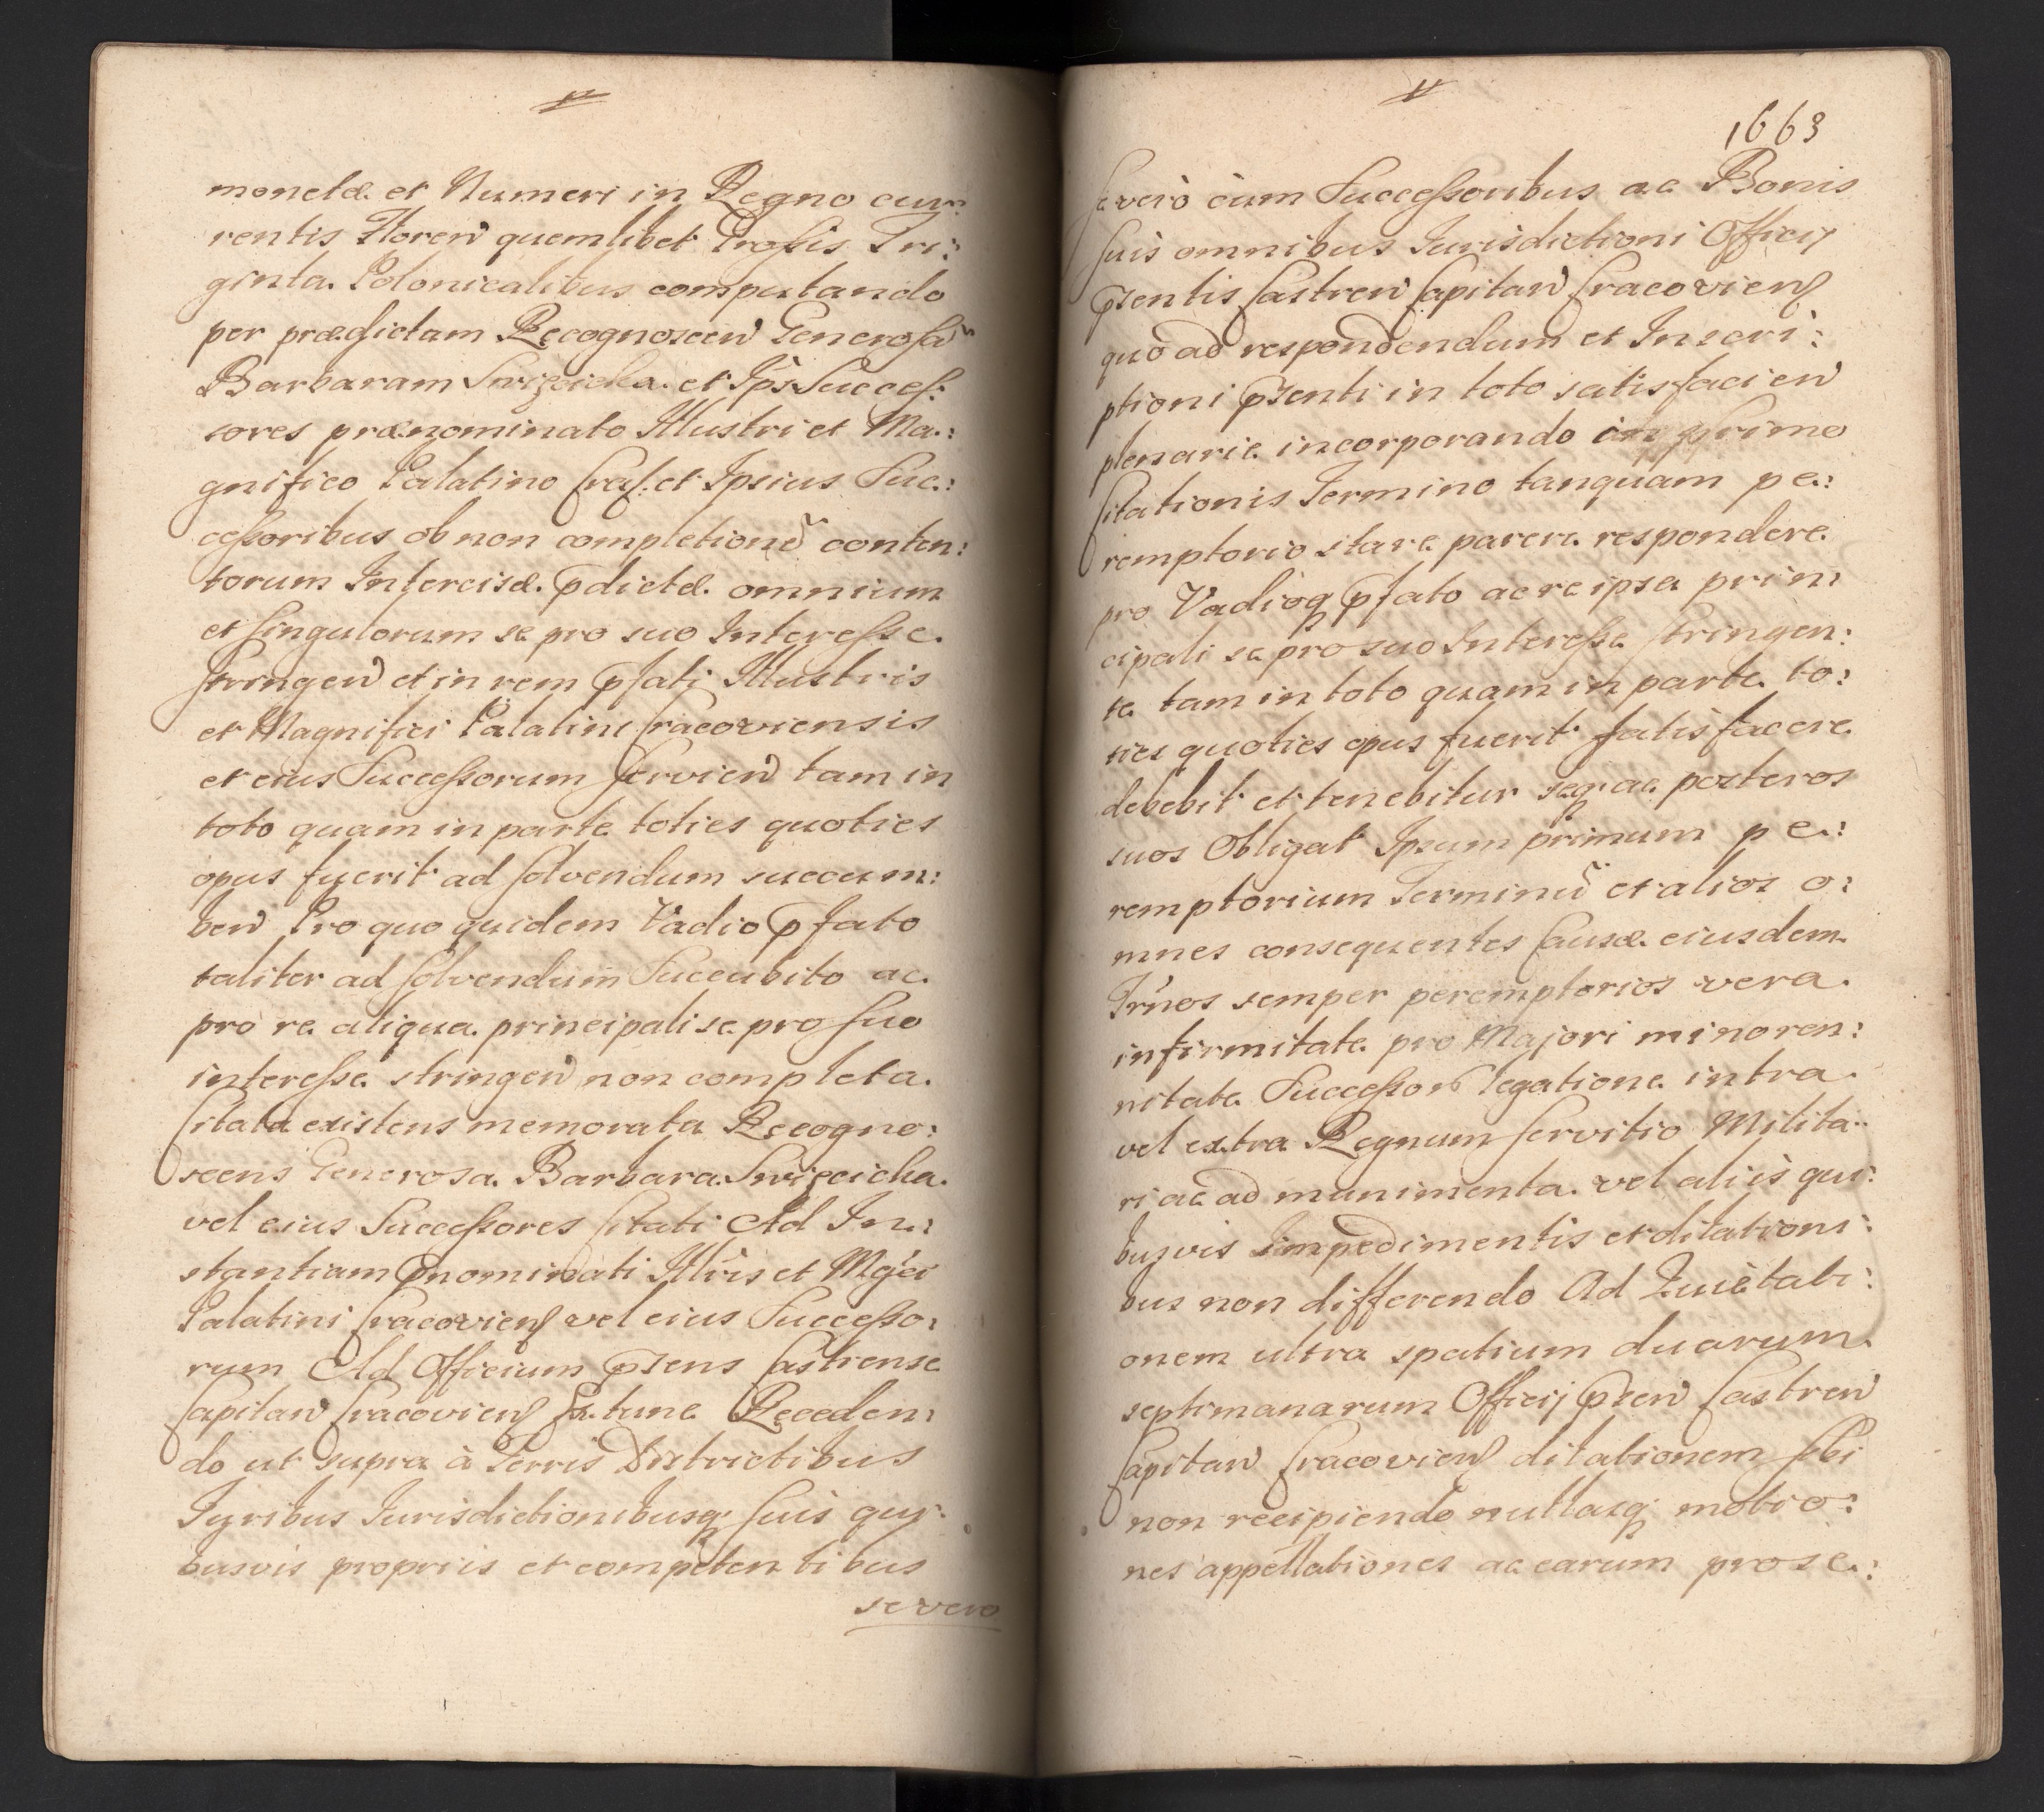 monetæ et Numeri in Regno cur:
rentis Floren quemlibet Grossis Tri:
ginta Polonicalibus computando
per prædictam Recognoscen Generosã
Barbaram Swizicka et Ips Succes:
sores prænominato Illustri et Ma:
gnifico Palatino Crac: et Ipsius Suc:
cessoribus ob non completionẽ conten:
torum Intercisæ pdictæ omnium
et singulorum se pro suo Interesse
stringen et in rem pfati Illustris
et Magnifici Palatini Cracoviensis
et eius Successorum servien tam in
toto quam in parte toties quoties
opus fuerit ad solvendum succum:
ben Pro quo quidem Vadio pfato
taliter ad solvendum Succubito ac
pro re aliqua principali se pro suo
interesse stringen non completa
Citata existens memorata Recogno:
scens Generosa Barbara Swizicka
vel eius Successores Citati Ad In:
stantiam pnominati Illris et Mgci
Palatini Cracovien vel eius Successo:
rum Ad Officium pzens Castrense
Capitan Cracovien Ex tunc Receden:
do ut supra à Terris Districtibus
Iuribus Iurisdictionibusq suis qui:
busvis propriis et competentibus
se vero
1663
se verò cum Successoribus ac Bonis
suis omnibus Iurisdictioni Officij
pzentis Castren Capitan Cracovien
quo ad respondendum et Inscri:
ptioni pzenti in toto satisfacien
plenarie incorporando in primo
Citationis Termino tanquam pe:
remptorio stare parere respondere
pro Vadioq pfato ac re ipsa prin:
cipali se pro suo Interesse stringen:
te tam in toto quam in parte to:
ties quoties opus fuerit satisfacere
debebit et tenebitur seq ac posteros
suos Obligat Ipsum primum pe:
remptorium Terminũ et alios o:
mnes consequentes Causæ eiusdem
Trnos semper peremptorios vera
infirmitate pro Majori minoren:
nitate Successor legatione intra
vel extra Regnum servitio Milita:
ri ac ad munimenta vel aliis qui:
busvis Impedimentis et dilationi:
bus non differendo Ad Quietati:
onem ultra spatium duarum
septimanarum Officij pzen Castren
Capitan Cracovien dilationem sibi
non recipiendo nullasq motio:
nes appellationes ac earum prose: